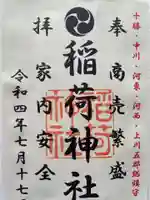 十勝・中川・河東・河西・上川五郡総鎮守
奉拝
商売繁盛
家内安全
稲荷神社
令和四年七月十七